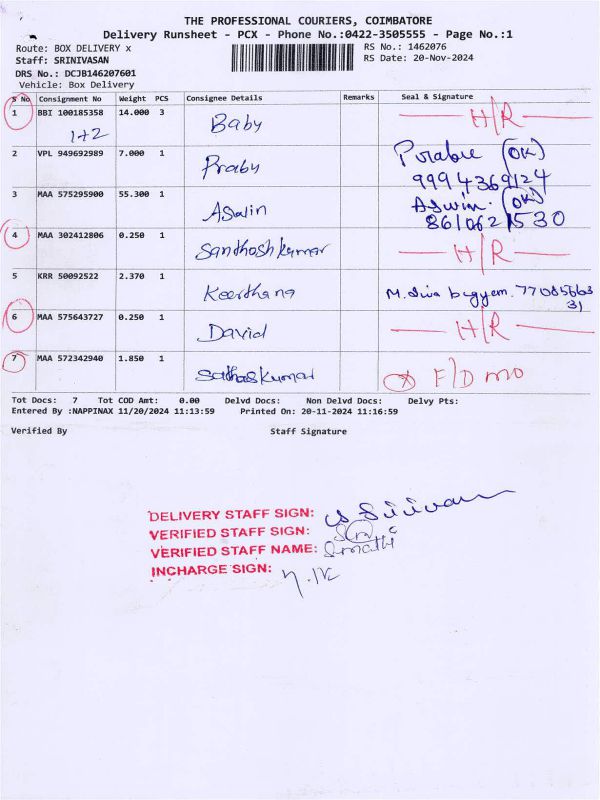 THE PROFESSIONAL COURIERS, COIMBATORE
Delivery Runsheet - PCX - Phone No.:0422-3505555 - Page No.:1
Route: BOX DELIVERY x
RS No.: 1462076
Staff: SRINIVASAN
RS Date: 20-Nov-2024
DRS No.: DCJB146207601
Vehicle: Box Delivery
S No Consignment No Weight PCS Consignee Details Remarks Seal & Signature
1 BBI 100185358 14.000 3 Baby H/R
1+2
2 VPL 949692989 7.000 1 Praby (OK)
9994369124
3 MAA 575295900 55.300 1 Aswin Aswin. (OK)
8610621530
4 MAA 302412806 0.250 1 Sandhosh kumar H/R
5 KRR 50092522 2.370 1 Keerthana M. Siva 77085663
31
6 MAA 575643727 0.250 1 David H/R
7 MAA 572342940 1.850 1 F/D
Tot Docs: 7 Tot COD Amt: 0.00 Delvd Docs: Non Delvd Docs: Delvy Pts:
Entered By :NAPPINAX 11/20/2024 11:13:59 Printed On: 20-11-2024 11:16:59
Verified By Staff Signature
DELIVERY STAFF SIGN:
VERIFIED STAFF SIGN:
VERIFIED STAFF NAME:
INCHARGE SIGN: